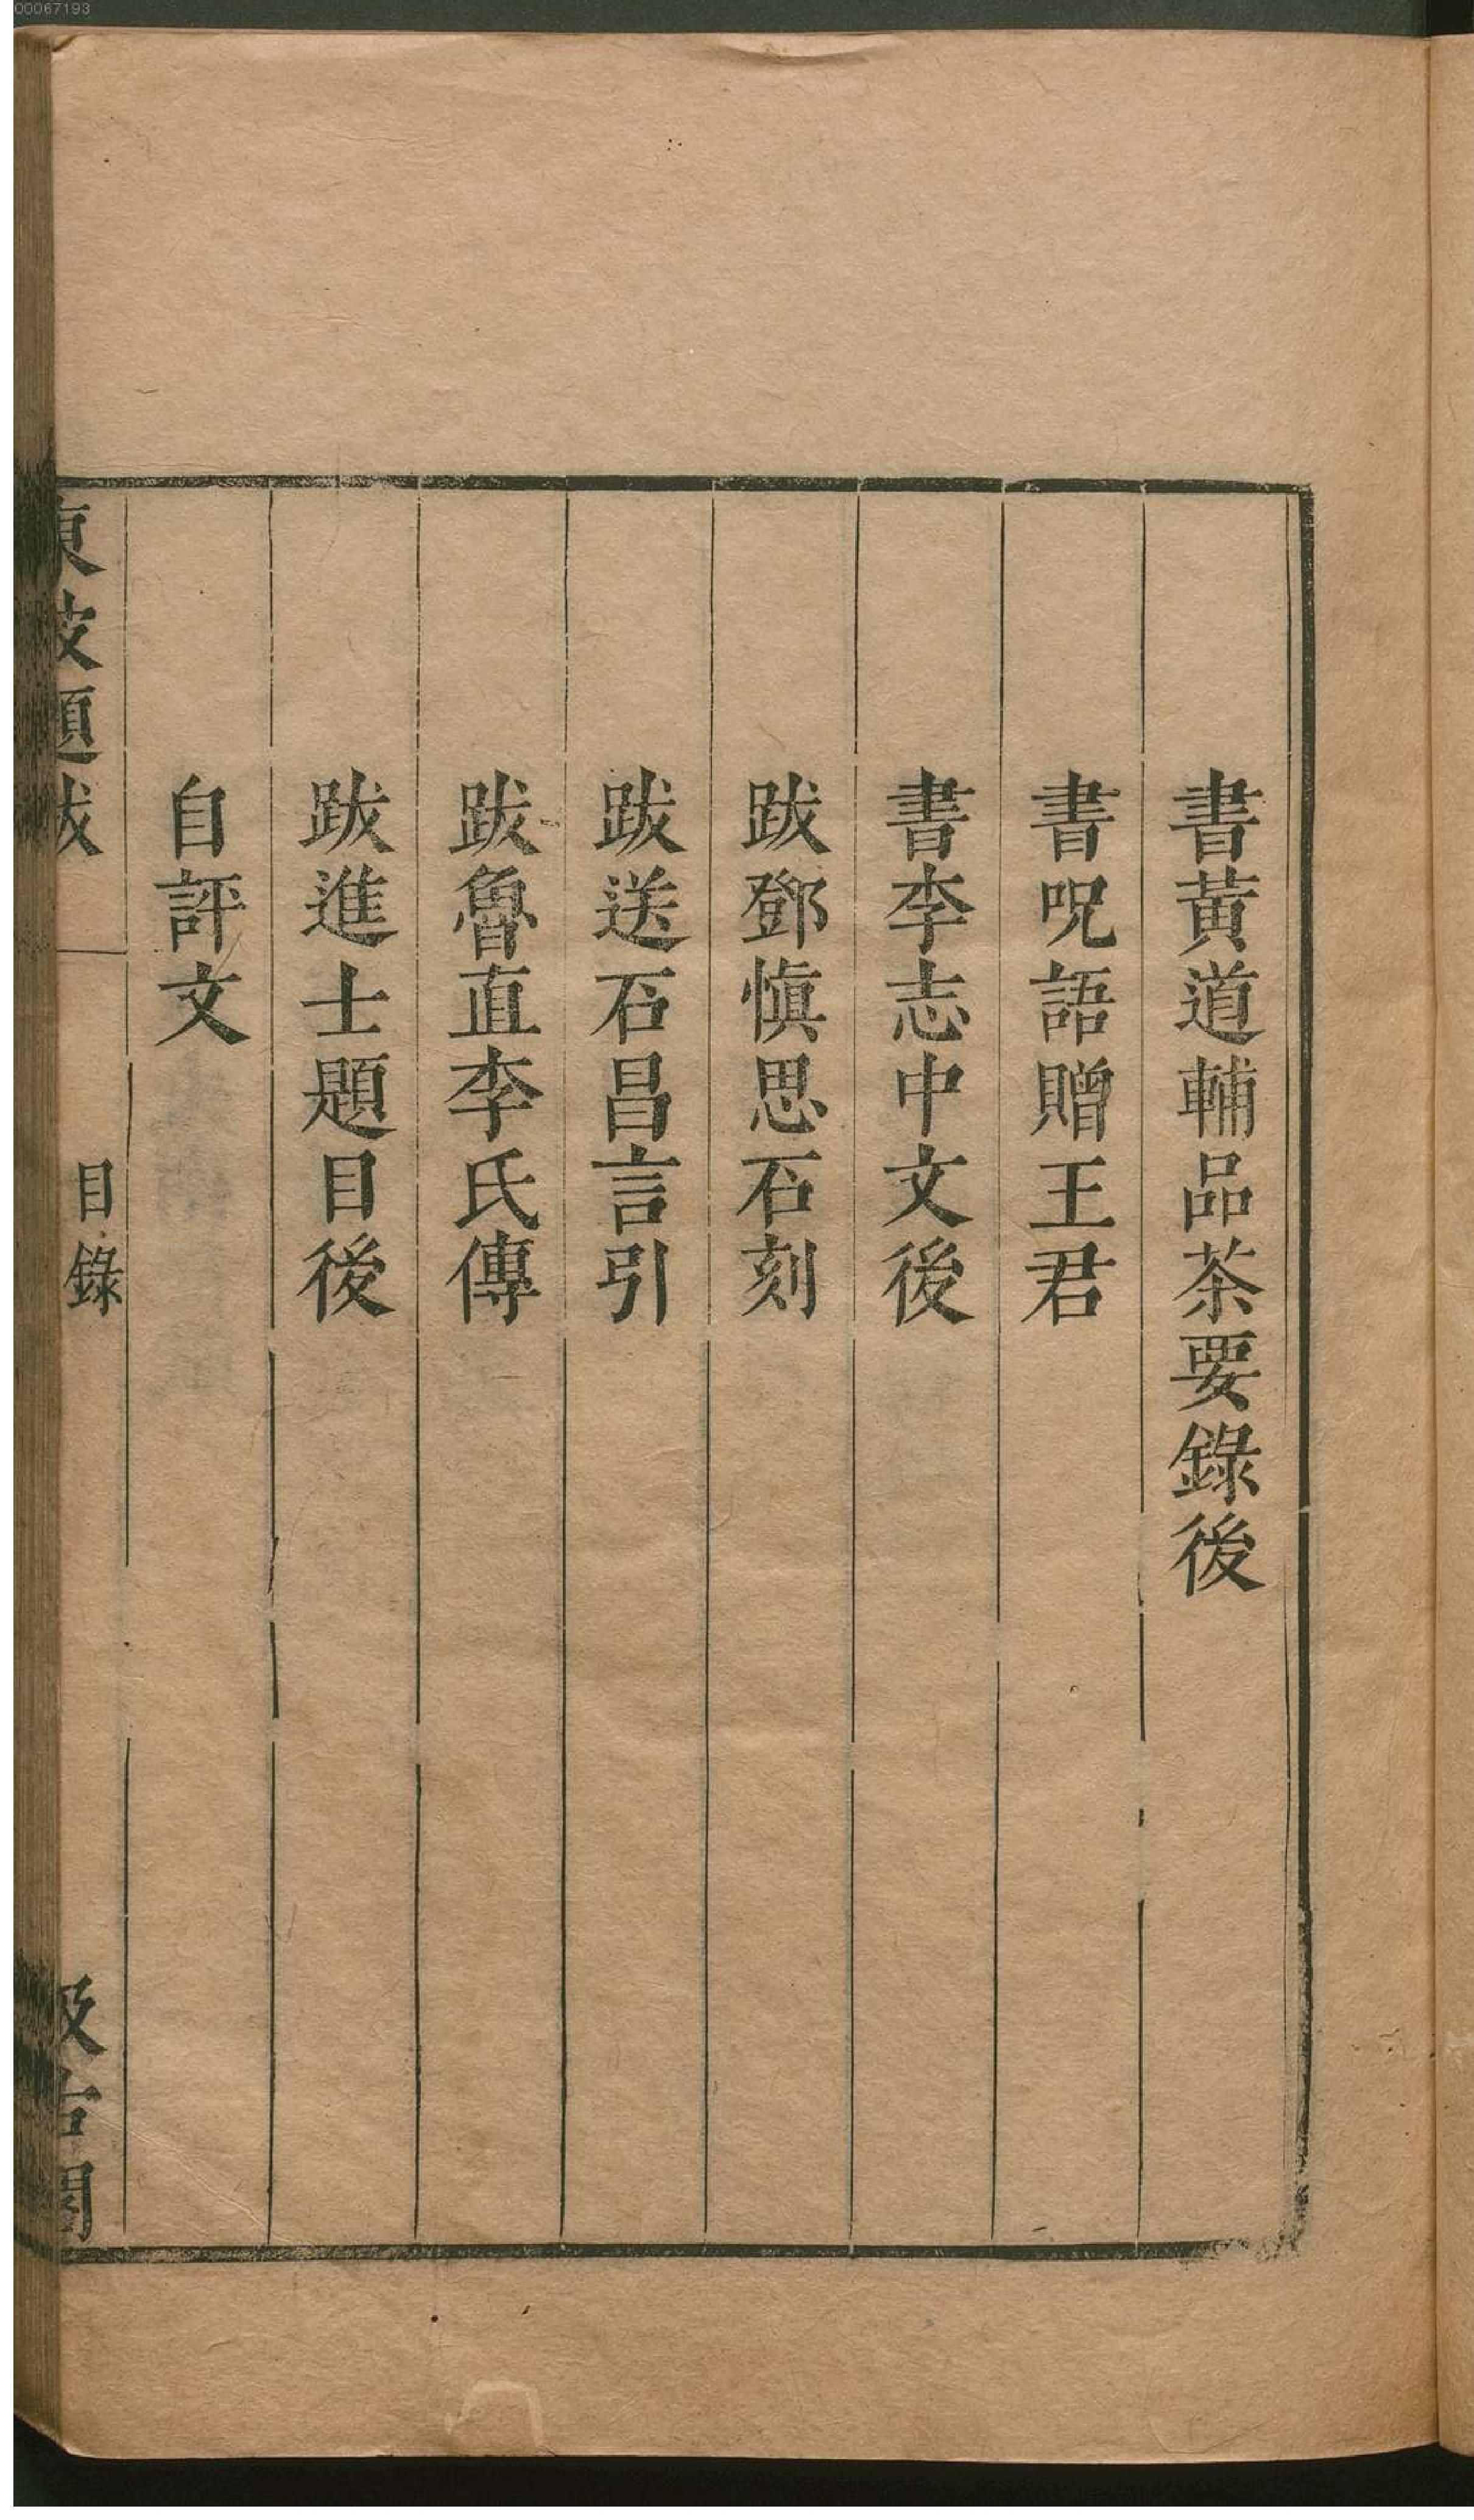 00067193
書黃道輔品茶要錄後
書呪語贈王君
書李志中文後
跋鄧愼思石刻
跋送石昌言引
跋魯直李氏傳
跋進士題目後
自評文
東坡題跋
目錄
汲古閣